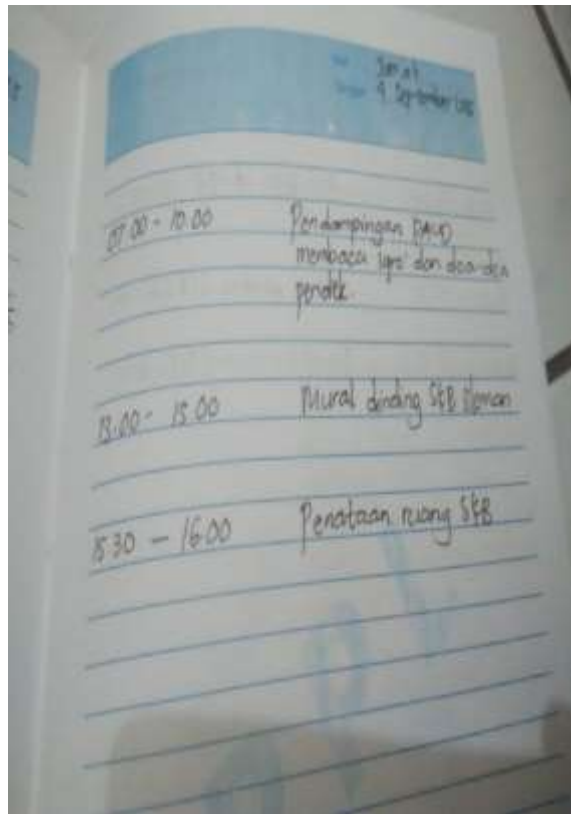 Jum'at
9 September 2016
07.00 - 10.00 Pendampingan PAUD
membaca iqro' dan doa-doa
pendek.
13.00 - 15.00 Mural dinding SKB Sleman
15.30 — 16.00 Penataan ruang SKB